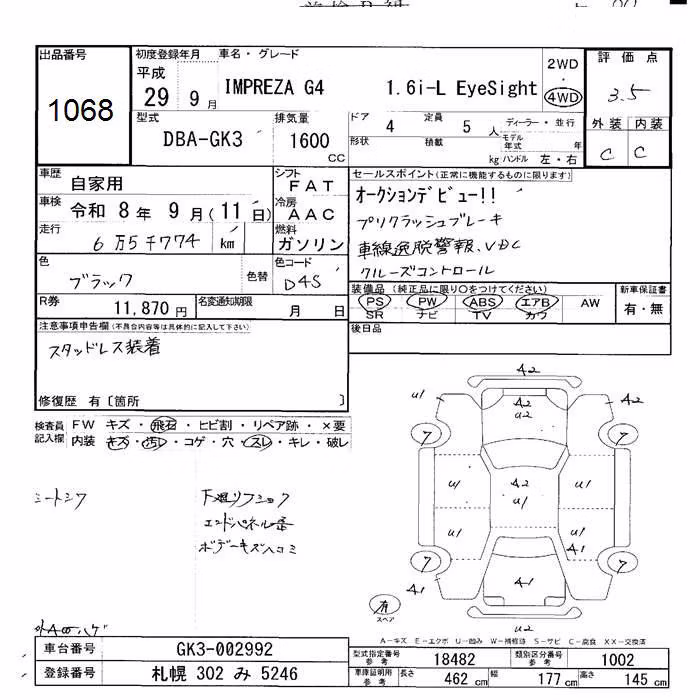 出品番号
1068
初度登録年月
平成
29 9 月
車名・グレード
IMPREZA G4 1.6i-L EyeSight
2WD
・
4WD
評価点
3.5
外装 内装
C C
型式
DBA-GK3
排気量
1600
CC
ドア
4
定員
5 人
ディーラー・並行
形状
積載
kg
モデル年式 年
ハンドル 左・右
車歴
自家用
シフト
FAT
車検
令和 8年 9月(11日)
冷房
AAC
走行
6万5千774 km
燃料
ガソリン
色
ブラック
色替
色コード
D4S
R券
11,870円
名変通知期限
月 日
セールスポイント(正常に機能するものに限ります)
オークションデビュー!!
プリクラッシュブレーキ
車線逸脱警報、VDC
クルーズコントロール
装備品(純正品に限り○をつけてください)
PS PW ABS エアB AW
SR ナビ TV カワ
新車保証書
有・無
後日品
注意事項申告欄(不具合内容等は具体的に記入して下さい)
スタッドレス装着
修復歴 有〔箇所 〕
検査員記入欄
FW キズ・飛石・ヒビ割・リペア跡・×要
内装 キズ・汚レ・コゲ・穴・スレ・キレ・破レ
シートシワ
下廻リフショク
エンドパネル歪
ボデーキズヘコミ
A2
U1 A2 A2
U2
7 7
U1 A2 U1
U1
U1 U1
A1
7 7
A1 A1
有
スペア
U2
A-キズ E-エクボ U-凹み W-補修跡 S-サビ C-腐食 XX-交換済
車台番号
GK3-002992
登録番号
札幌 302 み 5246
型式指定番号
参考
18482
類別区分番号
参考
1002
車庫証明用
参考
長さ
462 cm
幅
177 cm
高さ
145 cm